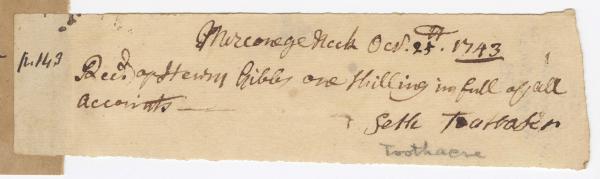 Merconege Neck Octr. 25th. 1743
p. 143
Recd. of Henry Gibbs one shilling in full of all
accounts
Seth Toothaker
Toothacre